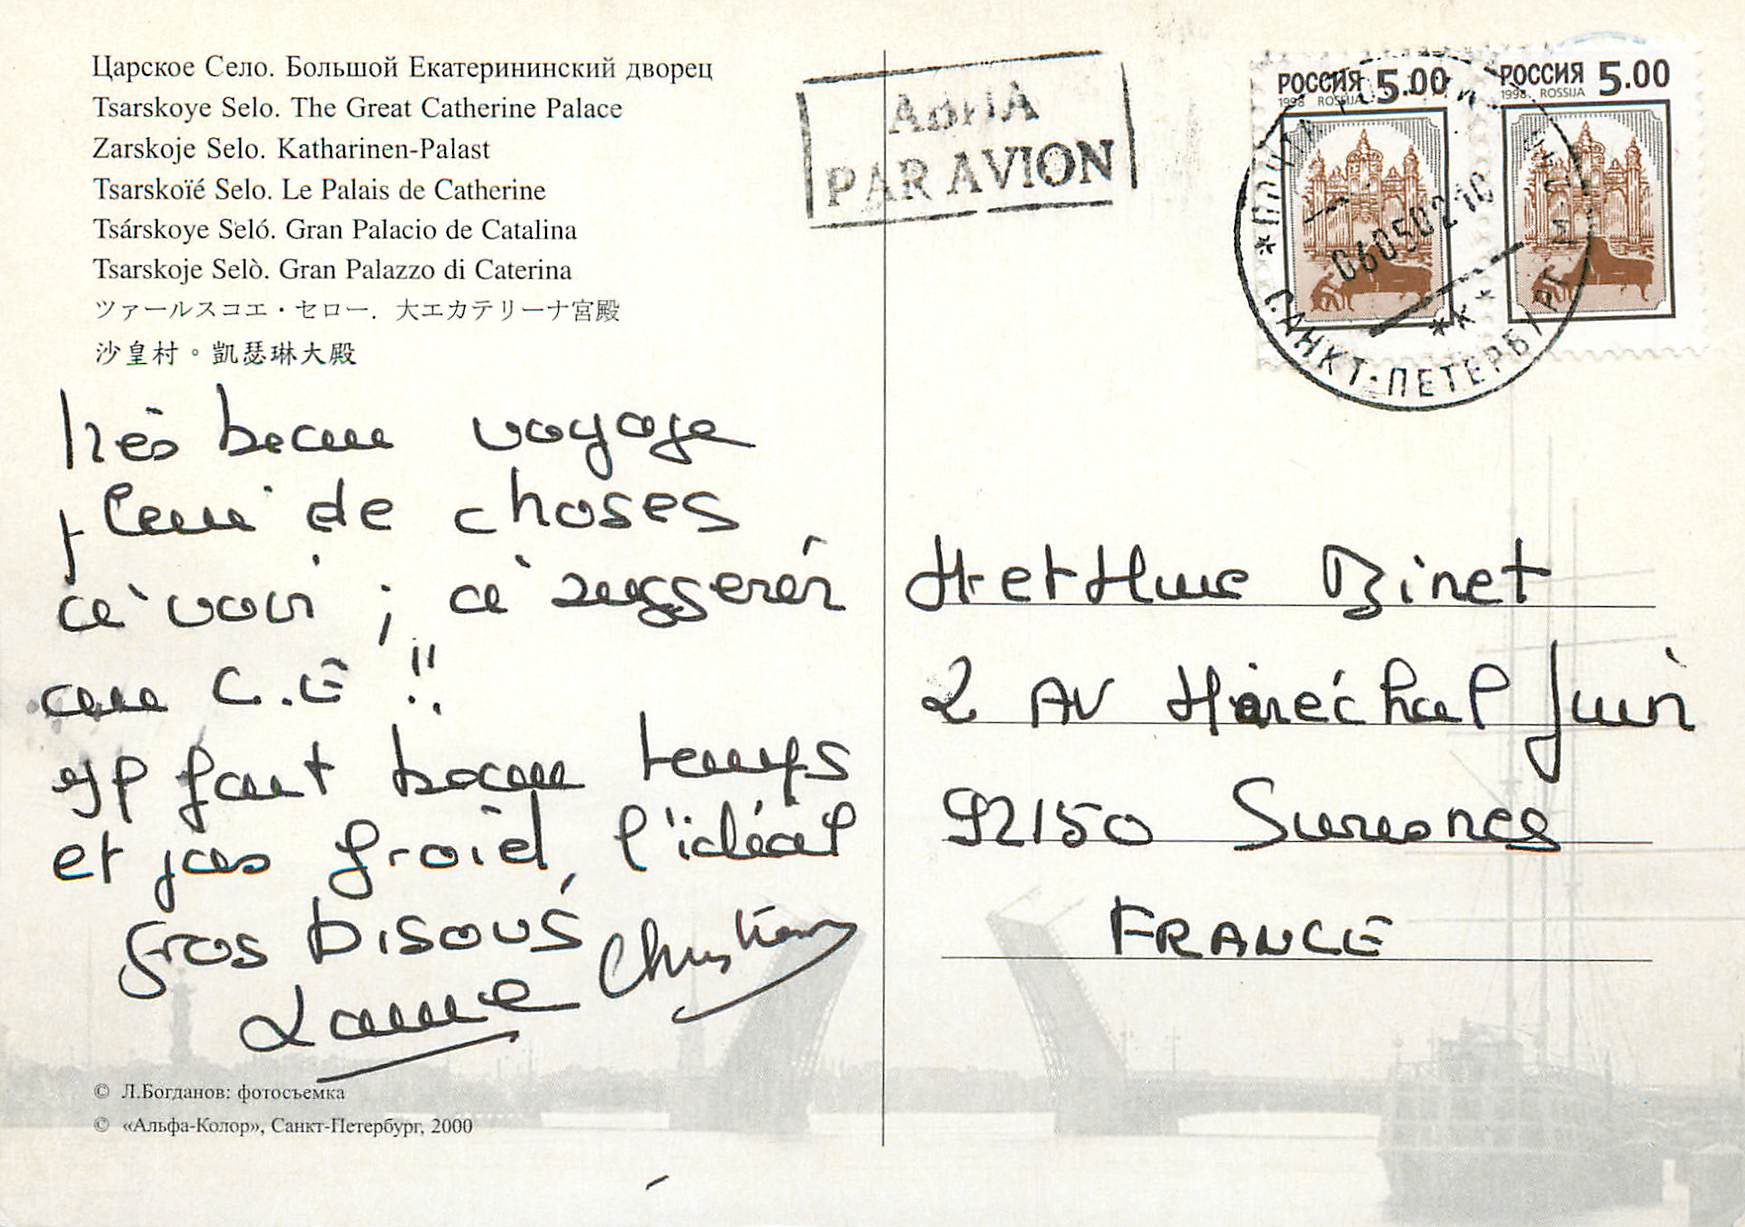 Царское Село. Большой Екатерининский дворец
Tsarskoye Selo. The Great Catherine Palace
Zarskoje Selo. Katharinen-Palast
Tsarskoïé Selo. Le Palais de Catherine
Tsárskoye Seló. Gran Palacio de Catalina
Tsarskoje Selò. Gran Palazzo di Caterina
ツァールスコエ・セロー. 大エカテリーナ宮殿
沙皇村。凱瑟琳大殿
АВИА
PAR AVION
РОССИЯ 5.00
1998 ROSSIJA
РОССИЯ 5.00
1998 ROSSIJA
САНКТ-ПЕТЕРБУРГ
060502 10
Très beau voyage
plein de choses
à voir ; à suggerér
au C.E !!
Il fait beau temps
et pas froid, l'idéal
Gros bisous
Christian
M et Mme Binet
2 AV Maréchal Juin
92150 Suresnes
FRANCE
© Л.Богданов: фотосъемка
© «Альфа-Колор», Санкт-Петербург, 2000